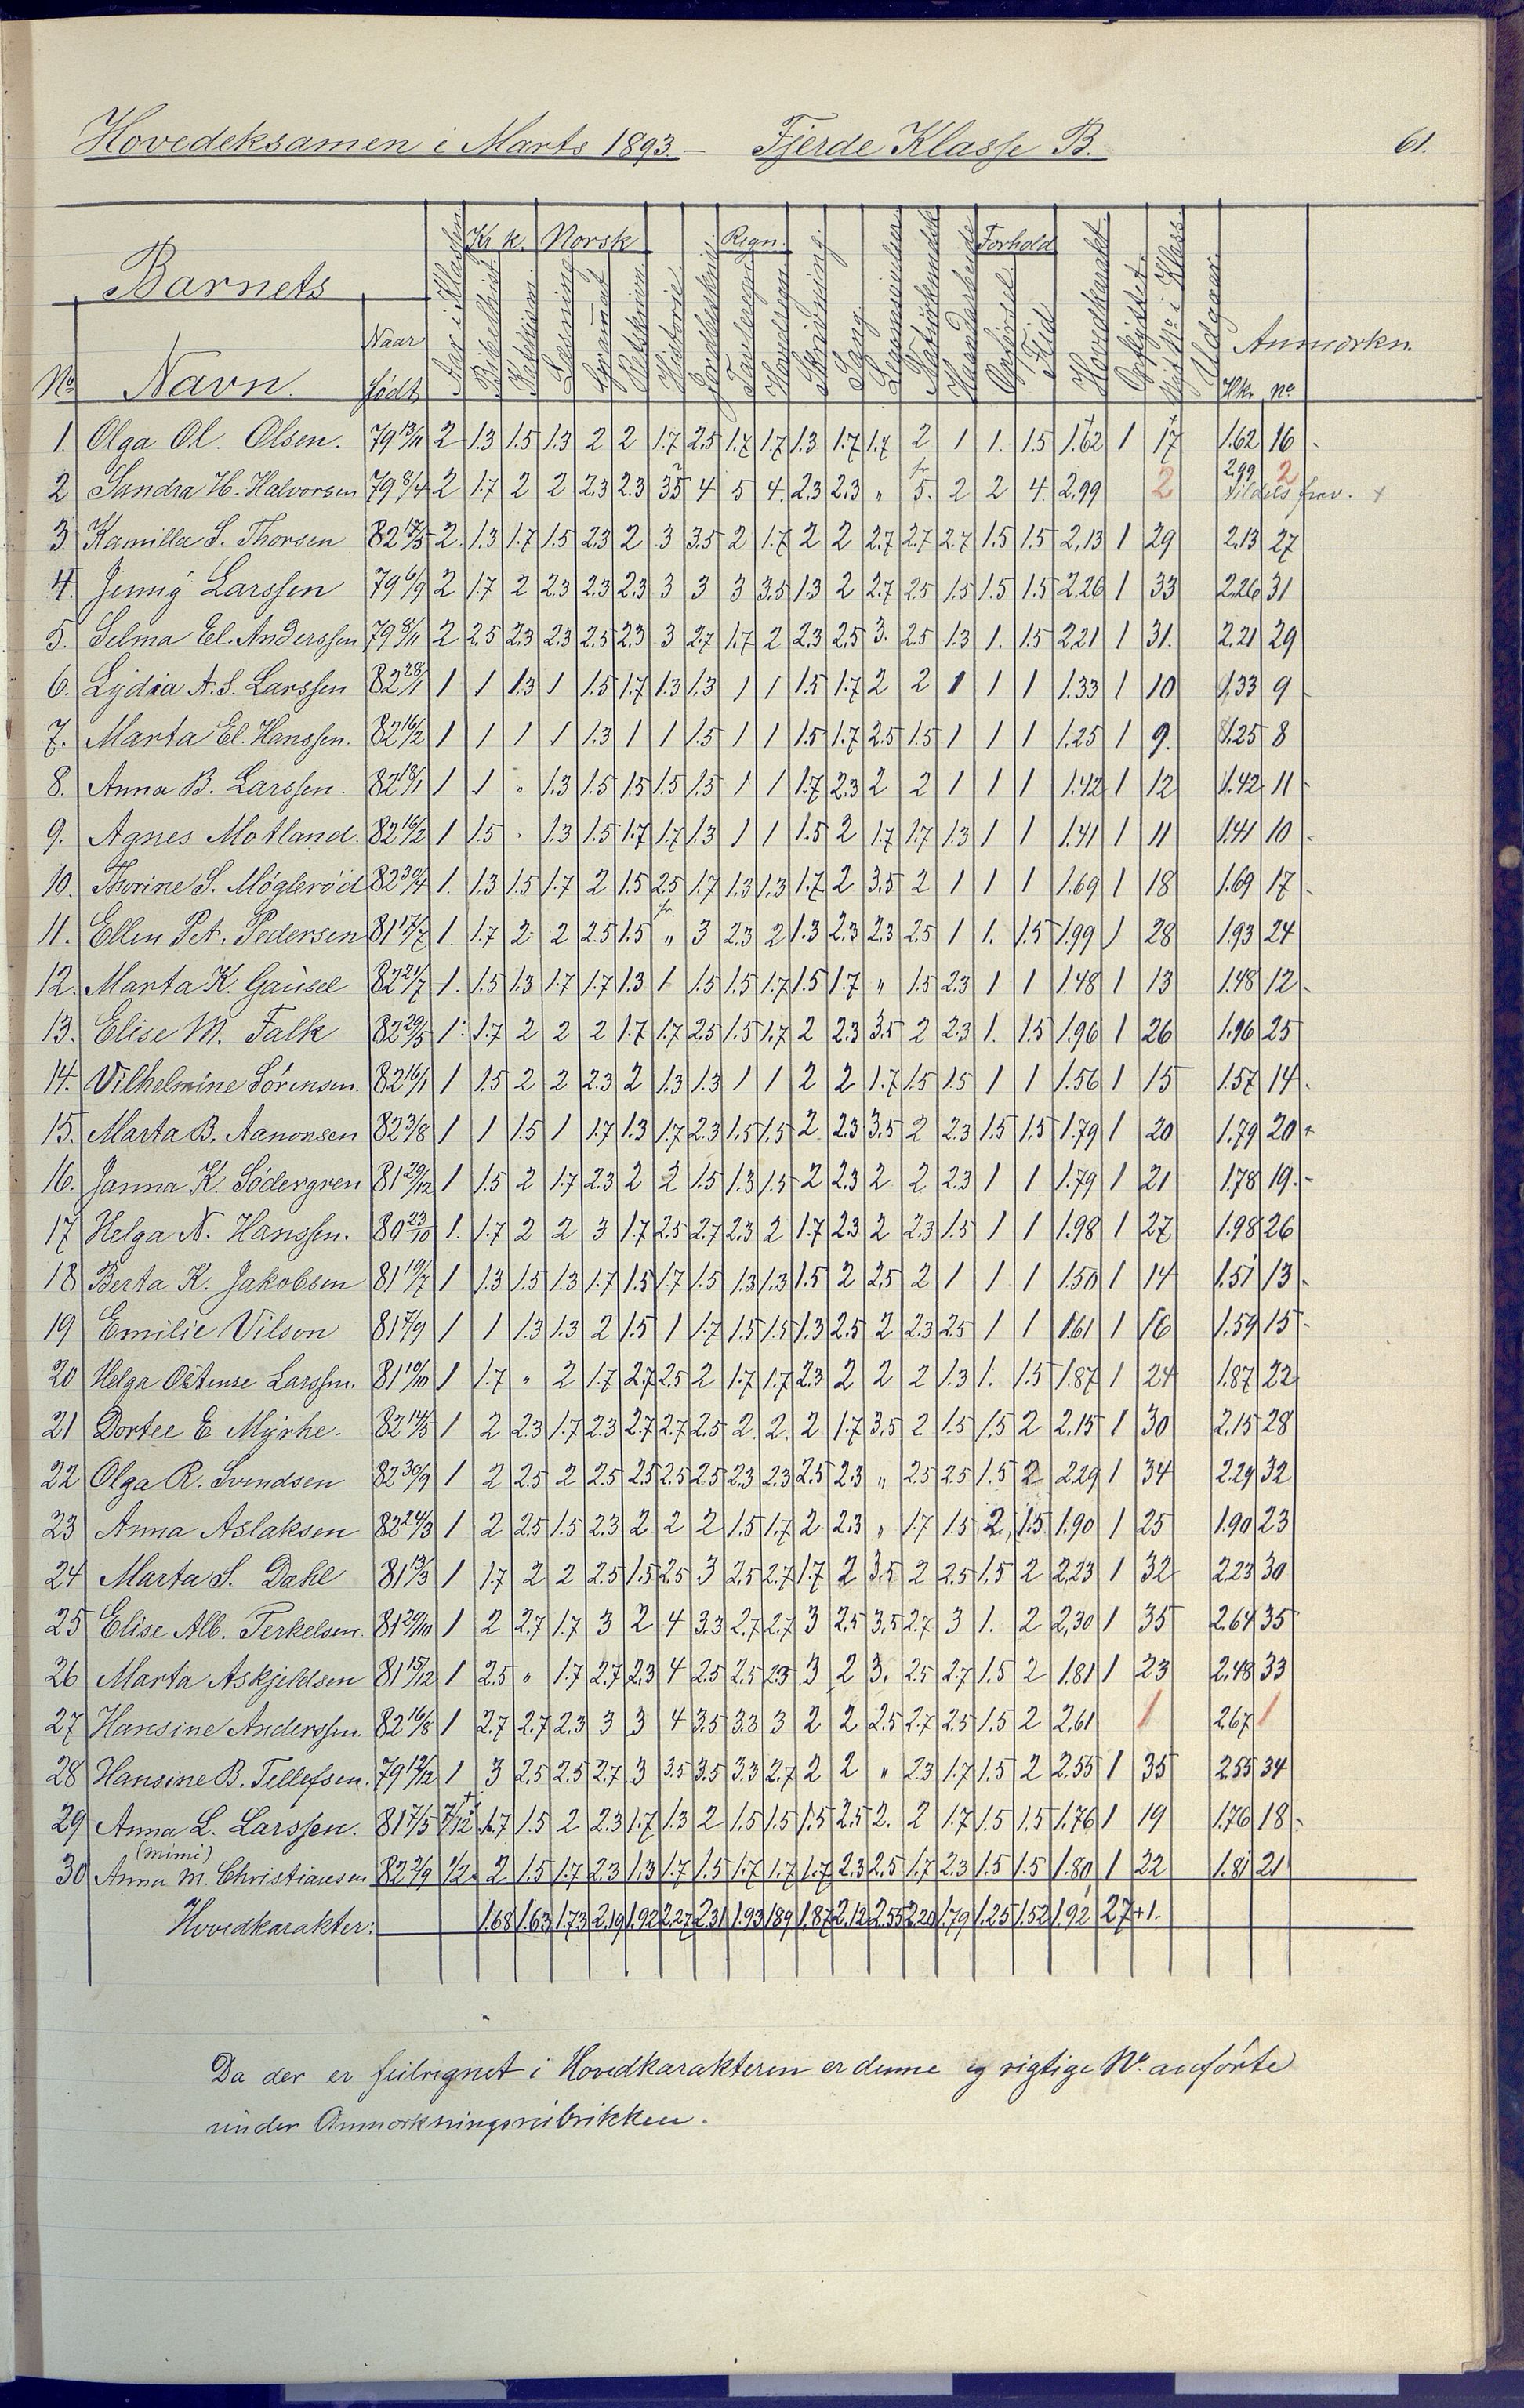 Hovedeksamen i Marts 1893. – Fjerde Klasse B. 61.
Kr. k. Norsk Regn. Forhold
Barnets
No Navn. Naar født Aar i Klassen Bibelhist. Katekism. Læsning Grammat. Retskrivn. Historie Jordbeskriv. Tavleregn. Hovedregn. Skrivning. Sang Naturkundsk. Haandarbeide Opførsel Flid Hovedkarakt. Opflyttet. Udgaar. Anmærkn.
Hkr. no
1. Olga Ol. Olsen. 79 13/11 2 1.3 1.5 1.3 2 2 1.7 2.5 1.7 1.7 1.3 1.7 1.7 2 1 1. 1.5 1.62 1 17 1.62 16
2 Sandra H. Halvorsen 79 8/4 2 1.7 2 2 2.3 2.3 3.5 4 5 4. 2.3 2.3 „ fr. 5. 2 2 4. 2.99 2 2.99 2 Tildels frav. +
3. Kamilla S. Thorsen 82 17/5 2. 1.3 1.7 1.5 2.3 2 3 3.5 2 1.7 2 2 2.7 2.7 2.7 1.5 1.5 2.13 1 29 2.13 27
4. Jenny Larssen 79 6/9 2 1.7 2 2.3 2.3 2.3 3 3 3 3.5 1.3 2 2.7 2.5 1.5 1.5 1.5 2.26 1 33 2.26 31
5. Selma El. Anderssen 79 8/11 2 2.5 2.3 2.3 2.5 2.3 3 2.7 1.7 2 2.3 2.5 3. 2.5 1.3 1. 1.5 2.21 1 31. 2.21 29
6. Lydia A. S. Larssen 82 28/1 1 1 1.3 1 1.5 1.7 1.3 1.3 1 1 1.5 1.7 2 2 1 1 1 1.33 1 10 1.33 9
7. Marta El. Hanssen. 82 16/2 1 1 1 1 1.3 1 1 1.5 1 1 1.5 1.7 2.5 1.5 1 1 1 1.25 1 9. 1.25 8
8. Anna B. Larssen. 82 18/1 1 1 „ 1.3 1.5 1.5 1.5 1.5 1 1 1.7 2.3 2 2 1 1 1 1.42 1 12 1.42 11
9. Agnes Motland. 82 16/2 1 1.5 „ 1.3 1.5 1.7 1.7 1.3 1 1 1.5 2 1.7 1.7 1.3 1 1 1.41 1 11 1.41 10
10. Thorine S. Møglerød 82 30/4 1. 1.3 1.5 1.7 2 1.5 2.5 1.7 1.3 1.3 1.7 2 3.5 2 1 1 1 1.69 1 18 1.69 17
11. Ellen Pet. Pedersen 81 17/7 1. 1.7 2 2 2.5 1.5 fr. „ 3 2.3 2 1.3 2.3 2.3 2.5 1 1. 1.5 1.99 1 28 1.93 24
12. Marta K. Gausel 82 21/7 1. 1.5 1.3 1.7 1.7 1.3 1 1.5 1.5 1.7 1.5 1.7 „ 1.5 2.3 1 1 1.48 1 13 1.48 12
13. Elise M. Falk 82 29/5 1. 1.7 2 2 2 1.7 1.7 2.5 1.5 1.7 2 2.3 3.5 2 2.3 1. 1.5 1.96 1 26 1.96 25
14. Vilhelmine Sörensen. 82 16/1 1 1.5 2 2 2.3 2 1.3 1.3 1 1 2 2 1.7 1.5 1.5 1 1 1.56 1 15 1.57 14.
15. Marta B. Aanonsen 82 3/8 1 1 1.5 1 1.7 1.3 1.7 2.3 1.5 1.5 2 2.3 3.5 2 2.3 1.5 1.5 1.79 1 20 1.79 20
16. Janna K. Södergren 81 29/12 1 1.5 2 1.7 2.3 2 2 1.5 1.3 1.5 2 2.3 2 2 2.3 1 1 1.79 1 21 1.78 19.
17 Helga N. Hanssen. 80 23/10 1. 1.7 2 2 3 1.7 2.5 2.7 2.3 2 1.7 2.3 2 2.3 1.5 1 1 1.98 1 27 1.98 26
18 Berta K. Jakobsen 81 19/7 1 1.3 1.5 1.3 1.7 1.5 1.7 1.5 1.3 1.3 1.5 2 2.5 2 1 1 1 1.50 1 14 1.51 13
19 Emilie Vilson 81 7/9 1 1 1.3 1.3 2 1.5 1 1.7 1.5 1.5 1.3 2.5 2 2.3 2.5 1 1 1.61 1 16 1.59 15
20 Helga Ostense Larssen. 81 10/10 1 1.7 „ 2 1.7 2.7 2.5 2 1.7 1.7 2.3 2 2 2 1.3 1. 1.5 1.87 1 24 1.87 22
21 Dortee E Myrhe. 82 14/5 1 2 2.3 1.7 2.3 2.7 2.7 2.5 2. 2. 2 1.7 3.5 2 1.5 1.5 2 2.15 1 30 2.15 28
22 Olga R. Svendsen 82 30/9 1 2 2.5 2 2.5 2.5 2.5 2.5 2.3 2.3 2.5 2.3 „ 2.5 2.5 1.5 2 2.29 1 34 2.29 32
23 Anna Aslaksen 82 24/3 1 2 2.5 1.5 2.3 2 2 2 1.5 1.7 2 2.3 „ 1.7 1.5 2 1.5 1.90 1 25 1.90 23
24 Marta S. Dahl 81 13/3 1 1.7 2 2 2.5 1.5 2.5 3 2.5 2.7 1.7 2 3.5 2 2.5 1.5 2 2.23 1 32 2.23 30
25 Elise Alb. Terkelsen. 81 29/10 1 2 2.7 1.7 3 2 4 3.3 2.7 2.7 3 2.5 3.5 2.7 3 1. 2 2.30 1 35 2.64 35
26 Marta Askjeldsen 81 15/12 1 2.5 „ 1.7 2.7 2.3 4 2.5 2.5 2.3 3 2 3. 2.5 2.7 1.5 2 1.81 1 23 2.48 33
27 Hansine Anderssen. 82 16/8 1 2.7 2.7 2.3 3 3 4 3.5 3.3 3 2 2 2.5 2.7 2.5 1.5 2 2.61 1 2.67 1
28 Hansine B. Tellefsen. 79 12/12 1 3 2.5 2.5 2.7 3 3.5 3.5 3.3 2.7 2 2 „ 2.3 1.7 1.5 2 2.55 1 35 2.55 34
29 Anna L. Larssen. 81 7/5 7/12 1.7 1.5 2 2.3 1.7 1.3 2 1.5 1.5 1.5 2.5 2. 2 1.7 1.5 1.5 1.76 1 19 1.76 18
(Mimi)
30 Anna M. Christiansen 82 2/9 1/2 2 1.5 1.7 2.3 1.3 1.7 1.5 1.7 1.7 1.7 2.3 2.5 1.7 2.3 1.5 1.5 1.80 1 22 1.81 21
Hovedkarakter: 1.68 1.63 1.73 2.19 1.92 2.27 2.31 1.93 1.89 1.87 2.12 2.55 2.20 1.79 1.25 1.52 1.92 27+1.
Da der er feilregnet i Hovedkarakteren er denne og rigtige No. anførte
under Anmærkningsrubrikken.